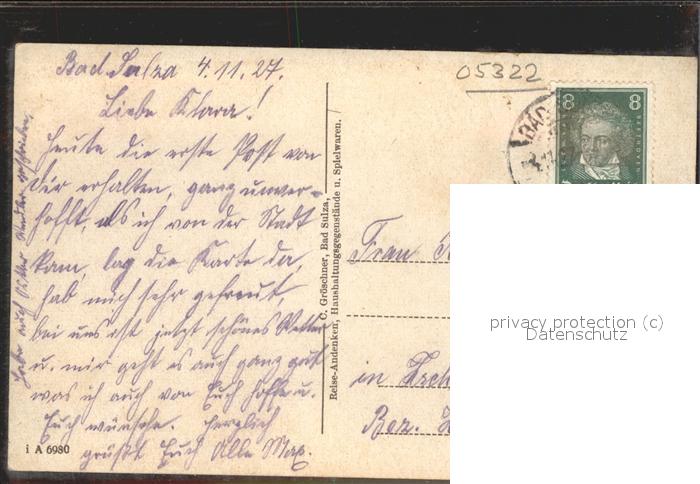 Bad Sulza 4.11.27.
Liebe Klara!
Heute die erste Post von
Dir erhalten, ganz unver-
hofft, als ich von der Stadt
kam, lag die Karte da,
hab mich sehr gefreut,
bei uns ist jetzt schönes Wetter
u. mir geht es auch ganz gut
was ich auch von Euch hoffe u.
Euch wünsche. Herzlich
grüßt Euch Alle Max.
Habe auch geschrieben,
i A 6980
C. Gröschner, Bad Sulza,
Reise-Andenken, Haushaltungsgegenstände u. Spielwaren.
05322
8 8
BEETHOVEN
BAD
Frau
in
Bez.
privacy protection (c)
Datenschutz